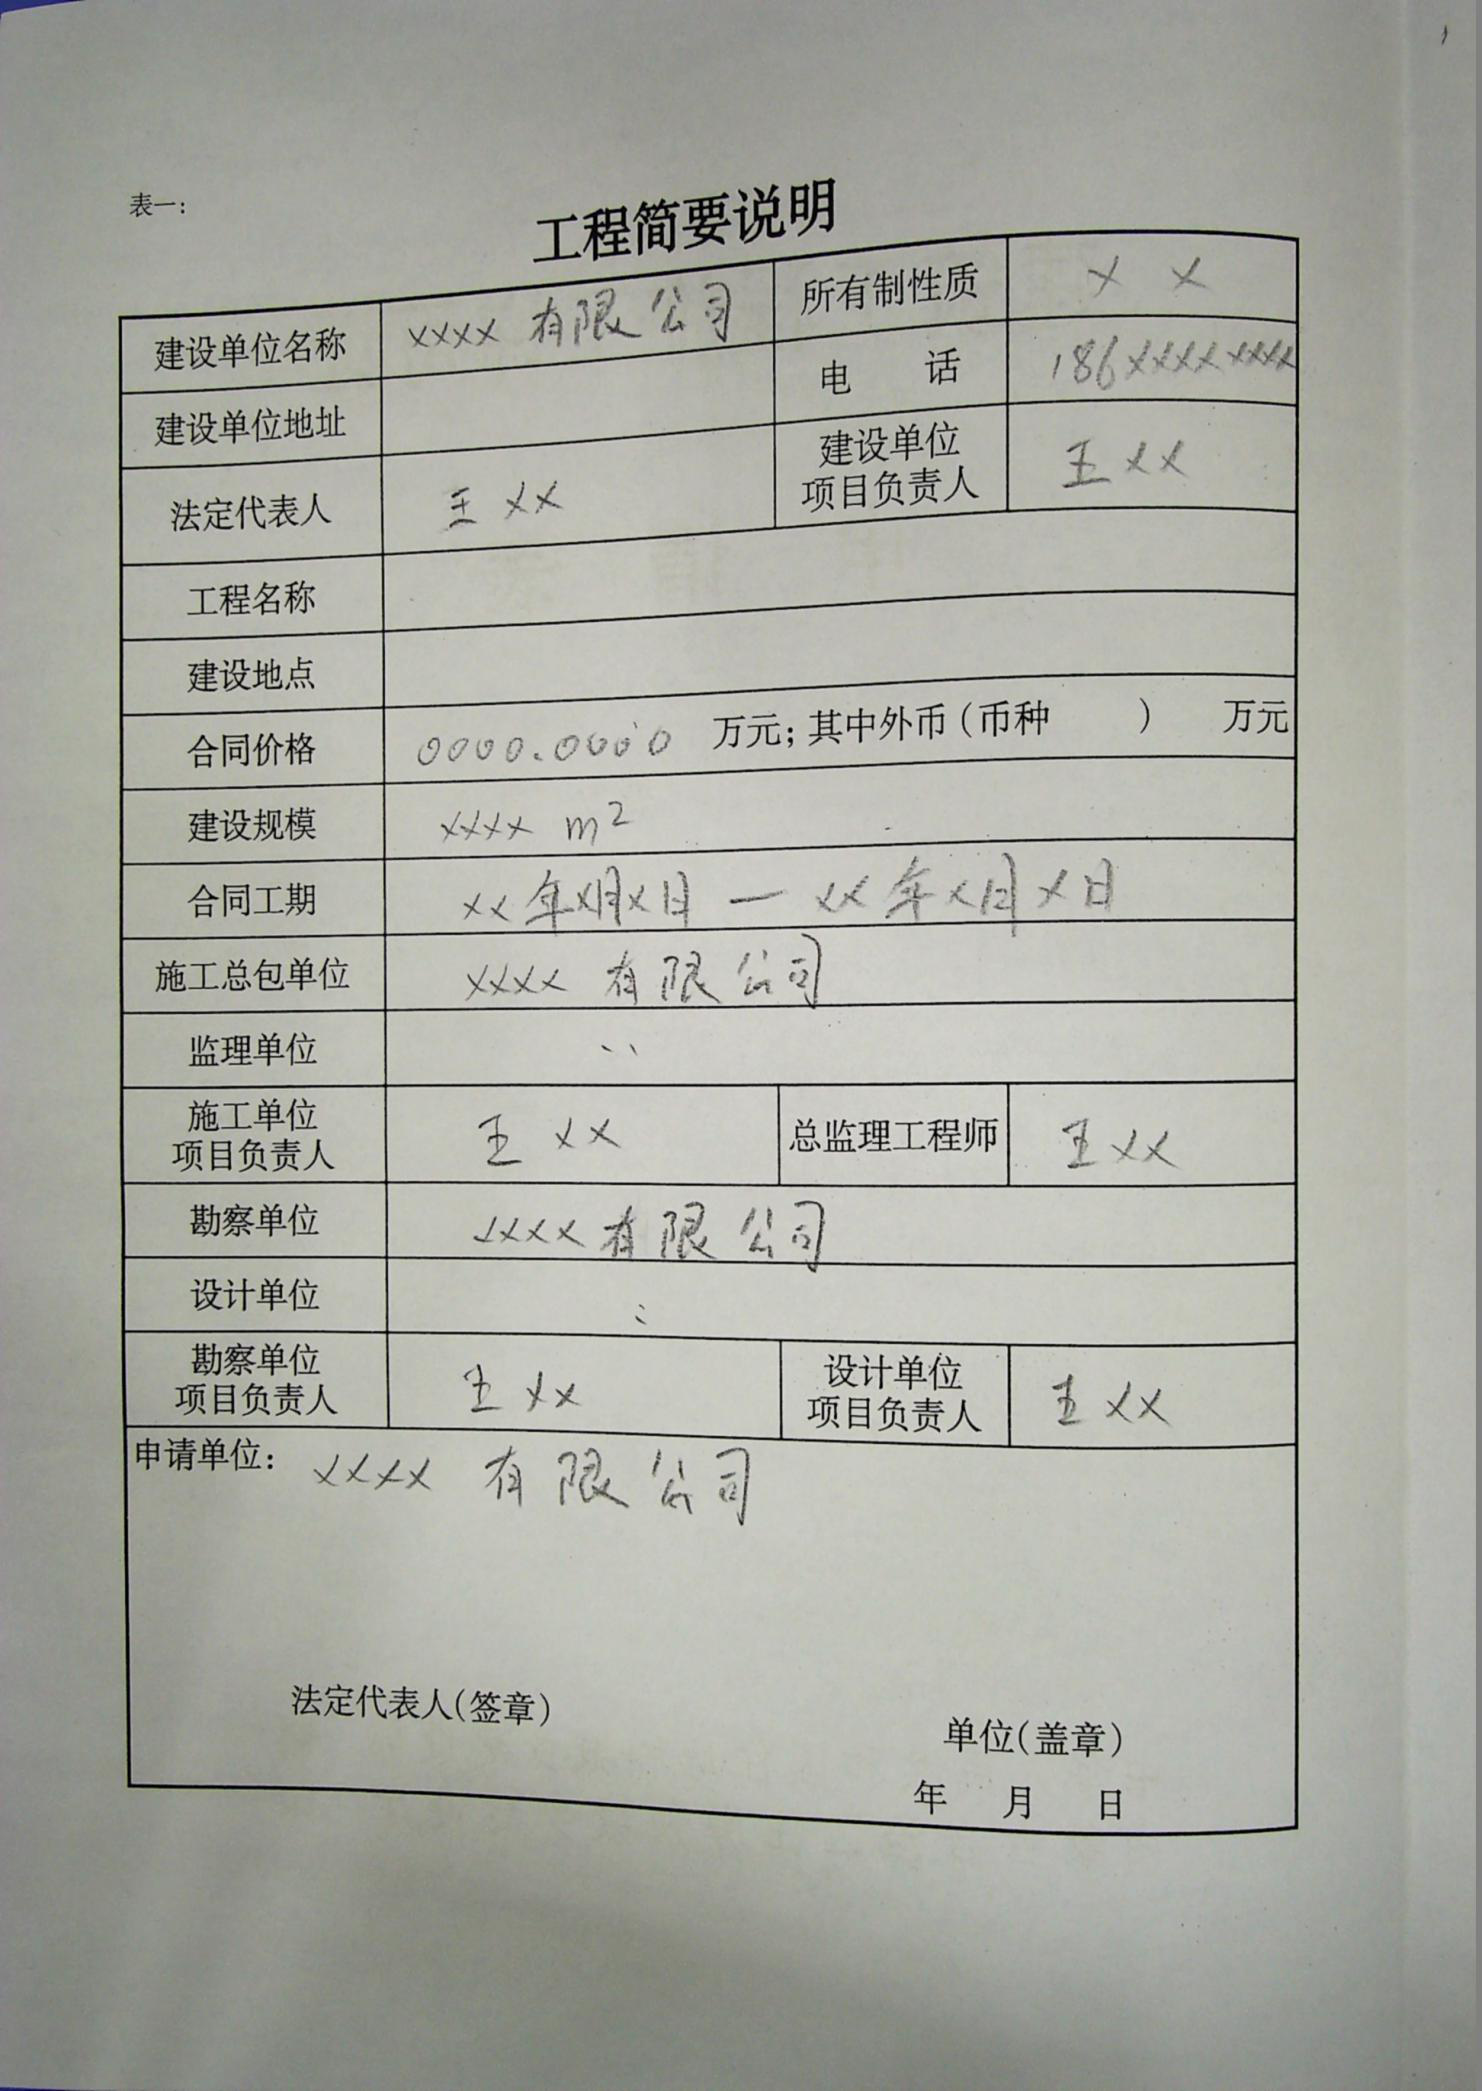 表一：
工程简要说明
建设单位名称 xxxx 有限公司 所有制性质 x x
建设单位地址 电 话 186xxxxxxxx
法定代表人 王 xx 建设单位
项目负责人 王 xx
工程名称
建设地点
合同价格 0000.0000 万元；其中外币（币种 ） 万元
建设规模 xxxx m²
合同工期 xx年x月x日 — xx年x月x日
施工总包单位 xxxx 有限公司
监理单位 、、
施工单位
项目负责人 王 xx 总监理工程师 王 xx
勘察单位 xxxx 有限公司
设计单位 、、
勘察单位
项目负责人 王 xx 设计单位
项目负责人 王 xx
申请单位： xxxx 有限公司
法定代表人（签章）
单位（盖章）
年 月 日